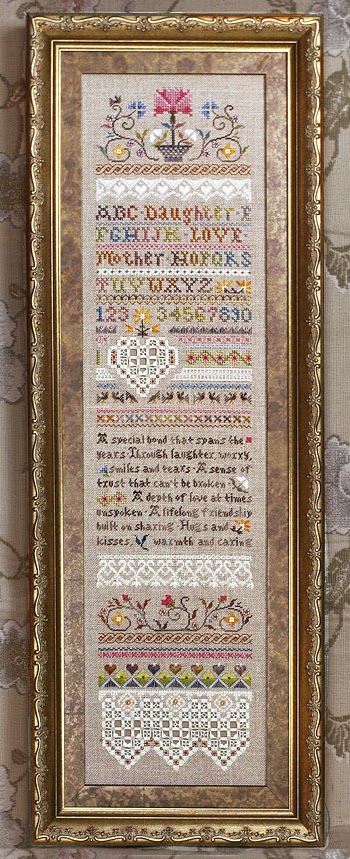 ABC Daughter E
FGHIJK · LOVE
Mother NOPQRS
TUVWXYZ
123 34567890
A special bond that spans the
years · Through laughter, worry,
smiles and tears · A sense of
trust that can't be broken
A depth of love at times
unspoken · A lifelong friendship
built on sharing · Hugs and
kisses, warmth and caring